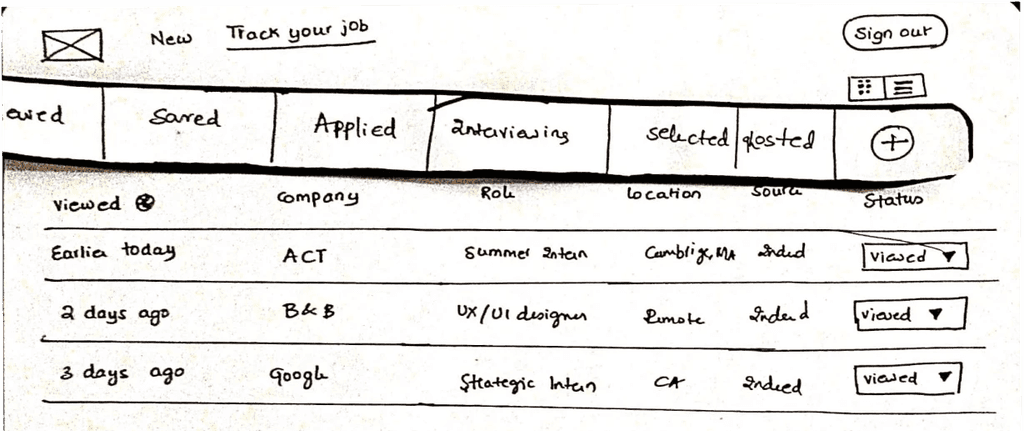 New Track your job Sign out
ewed Saved Applied Interviewing selected posted
viewed Company Role Location Source Status
Earlier today ACT Summer Intern Cambrige, MA Indeed viewed
2 days ago B&B UX/UI designer Remote Indeed viewed
3 days ago Google Strategic Intern CA Indeed viewed